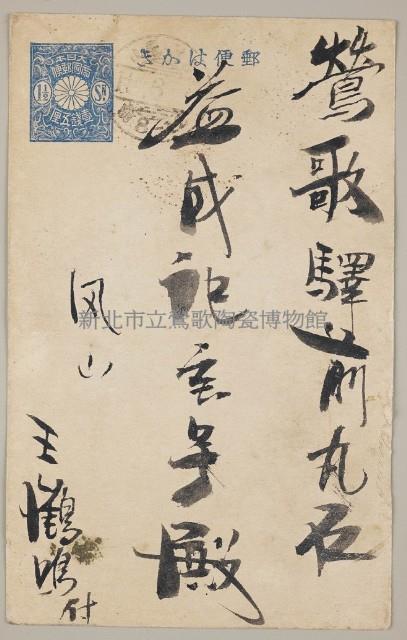 郵便はかき
大日本
帝國郵便
1½ Sn
壹錢五厘
鶯歌驛前丸石
益成記寶号殿
鳳山
王鶴鳴付
新北市立鶯歌陶瓷博物館